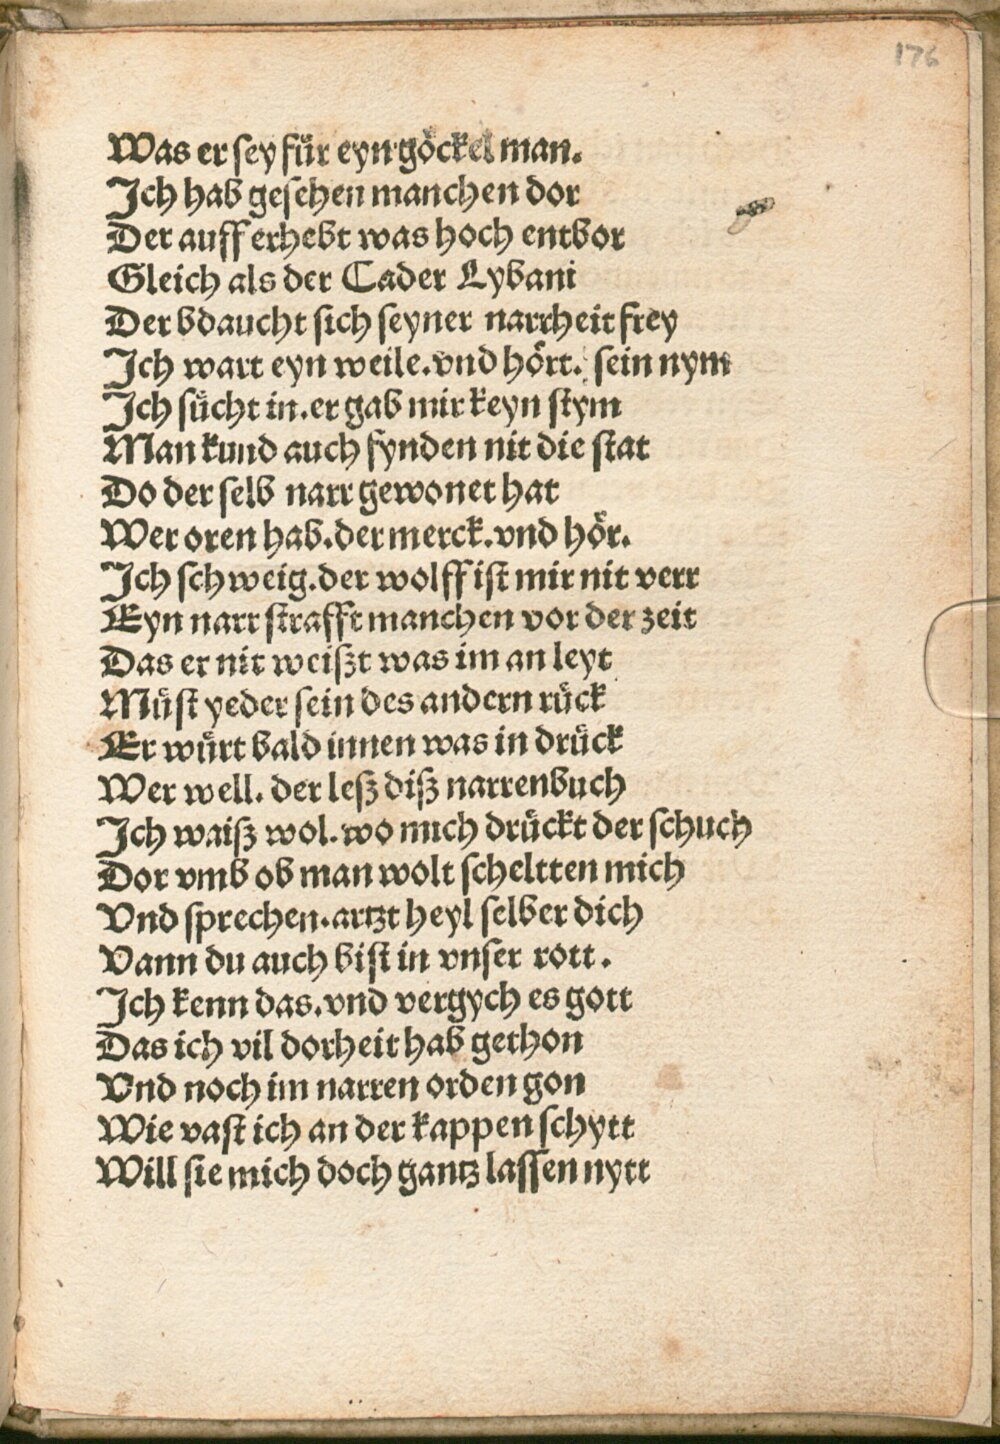 176
Was er sey für eyn göckel man.
Jch hab gesehen manchen dor
Der auff erhebt was hoch entbor
Gleich als der Cader Lybani
Der bdaucht sich seyner narrheit frey
Jch wart eyn weile. vnd hört. sein nym
Jch sücht in. er gab mir keyn stym
Man kund auch fynden nit die stat
Do der selb narr gewonet hat
Wer oren hab. der merck. vnd hör.
Jch schweig. der wolff ist mir nit verr
Eyn narr strafft manchen vor der zeit
Das er nit weiszt was im an leyt
Müst yeder sein des andern rück
Er würt bald innen was in drück
Wer well. der lesz disz narrenbuch
Jch waisz wol. wo mich drückt der schuch
Dor vmb ob man wolt scheltten mich
Vnd sprechen. artzt heyl selber dich
Vann du auch bist in vnser rott.
Jch kenn das. vnd vergych es gott
Das ich vil dorheit hab gethon
Vnd noch im narren orden gon
Wie vast ich an der kappen schytt
Will sie mich doch gantz lassen nytt